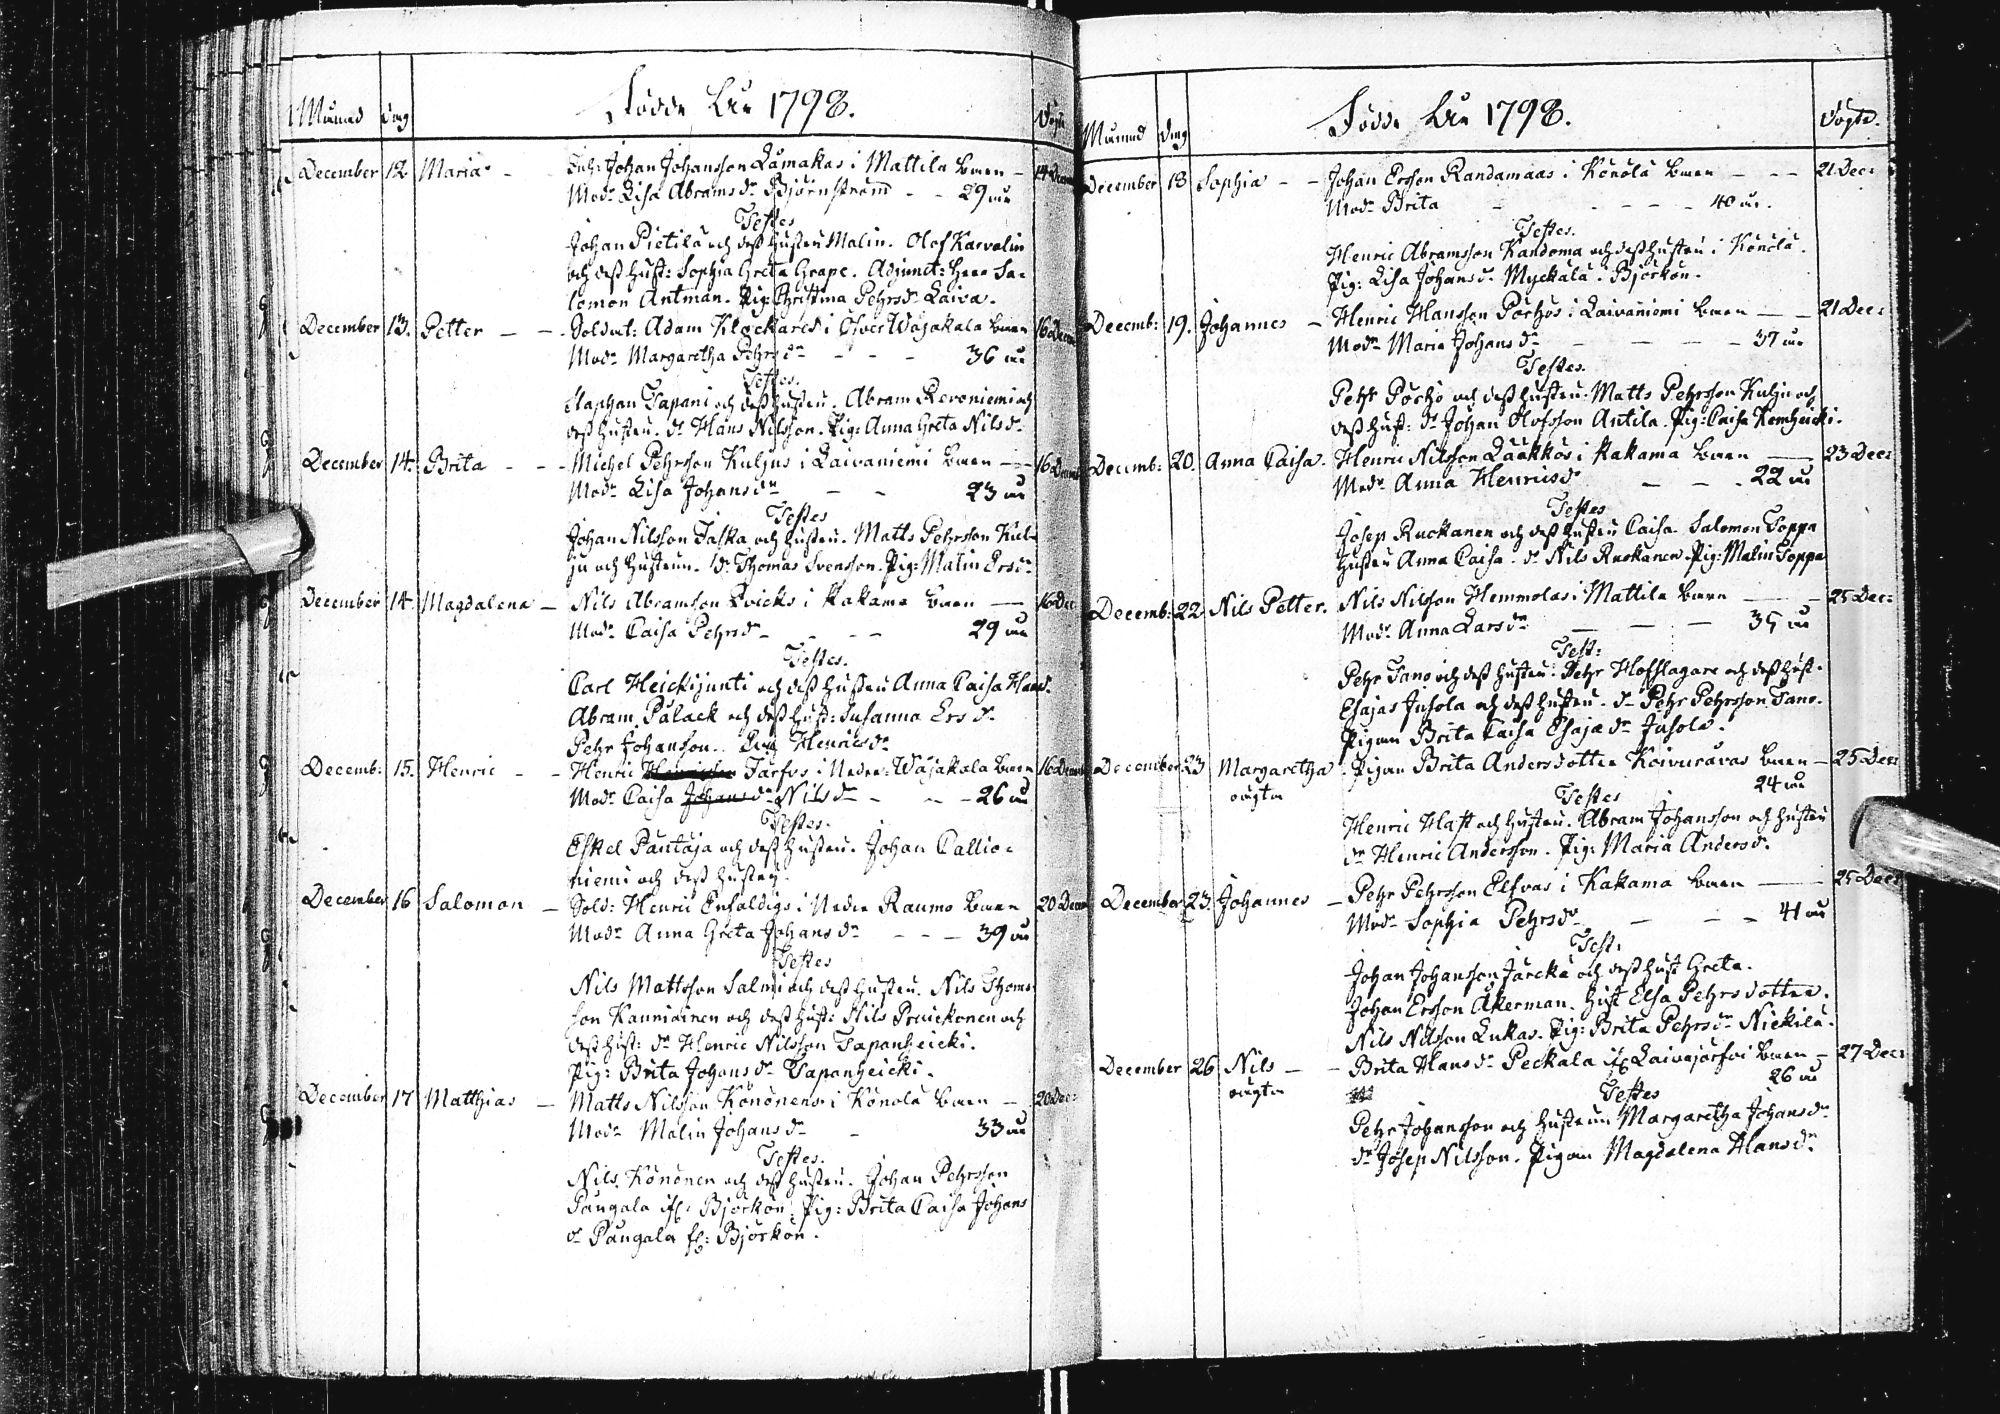 Månad dag Födde Åhr 1798. Döpte
December 12. Maria - - Inh: Johan Johansson Lämakas i Mattila barn - 14 Decemb
Modr Lisa Abramsdr Björnström - - 29 år
Testes
Johan Pietilä och dess hustru Malin. Olof Karvalin
och dess hust: Sophia Greta Grape. Adjunct: Herr Sa-
lomon Antman. Pig: Christina Pehrsdr Laiva.
December 13. Petter - - Soldat: Adam Klockares i Öfver Wojakala barn 16 Decem
Modr Margaretha Pehrsdr - - - 36 år
Testes.
Staphan Tapani och dess hustru. Abram Revoniemi och
dess hustru. dr Hans Nilsson. Pig: Anna Greta Nilsdr
December 14. Brita - - - Michel Pehrsson Kuljus i Laivaniemi barn - 16 Decemb
Modr Lisa Johansdr - - 23 år
Testes
Johan Nilsson Taska och hustru. Matts Pehrsson Kul-
ju och hustrun. dr Thomas Svensson. Pig: Malin Ersdr
December 14. Magdalena - Nils Abramsson Qvicks i Kakama barn - 16 Dec:
Modr Caisa Pehrsdr - - - 29 år
Testes.
Carl Heickijunti och dess hustru Anna Caisa Hansdr
Abram Palack och dess hust: Susanna Ersdr
Pehr Johansson. Pig Henricsdr
Decemb: 15. Henric - - Henric Tärfvs i Neder: Wojakala barn 16 Decemb
Modr Caisa Johansdr Nilsdr - - - 26 år
Testes.
Eskel Pautaja och dess hustru. Johan Callio-
niemi och dess hustru.
December 16 Salomon - Sold: Henric Enfaldigs i Nedre Raumo barn 20 Decem
Modr Anna Greta Johansdr - - - 39 år
Testes
Nils Mattsson Salmi och dess hustru. Nils Thoms-
son Kauniainen och dess hust: Nils Pruickonen och
dess hust: dr Henric Nilsson Tapanheicki.
Pig: Brita Johansdr Tapanheicki.
December 17 Matthias - Matts Nilsson Könönens i Könölä barn - 20 Dec:
Modr Malin Johansdr - 33 år
Testes.
Nils Könönen och dess hustru. Johan Pehrsson
Paugala ifr: Björkön: Pig: Brita Caisa Johans
dr Paugala fr: Björkön.
Månad dag Födde Åhr 1798. Döpte.
December 18 Sophia - - Johan Ersson Randamaas i Könölä barn - - - 21 Dec:
Modr Brita - - - - - 40 år.
Testes.
Henric Abramsson Kandoma och dess hustru i Könölä.
Pig: Lisa Johansdr Myckälä i Björkön.
Decemb: 19. Johannes - Henric Hansson Pörhös i Laivaniemi barn - - 21 Dec:
Modr Maria Johansdr - - - - 37 år
Testes.
Pehr Pörhö och dess hustru. Matts Pehrsson Kulju och
dess hust: dr Johan Olofsson Antila. Pig: Caisa Kemheicki.
Decemb: 20. Anna Caisa. Henric Nilsson Lääkkös i Kakama barn - 23 Dec:
Modr Anna Henricsdr - - - 22 år
Testes
Josep Ruokanen och dess hustru Caisa. Salomon Toppa
hustru Anna Caisa. dr Nils Ruokanen. Pig: Malin Toppa
Decemb: 22. Nils Petter. Nils Nilsson Hemmolas i Mattila barn - - 25 Dec:
Modr Anna Larsdr - - - 35 år
Test:
Pehr Tano och dess hustru. Pehr Hofslagare och dess hust.
Esajas Jusola och dess hustru. dr Pehr Pehrsson Tano.
Pigan Brita Caisa Esajædr Jusola.
December 23 Margaretha - Pigan Brita Andersdotter Koivuravas barn - 25 Dec:
oägta 24 år
Testes
Henric Haft och hustru. Abram Johansson och hustru
dr Henric Andersson. Pig: Maria Andersdr.
December 23. Johannes - Pehr Pehrsson Elfvas i Kakama barn - 25 Dec:
Modr Sophia Pehrsdr - - - 41 år
Test:
Johan Johansson Järckä och dess hust Greta.
Johan Ersson Åkerman. hust Elsa Pehrsdotter.
Nils Nilsson Lukas. Pig: Brita Pehrsdr Nickilä.
December 26 Nils - - Brita Hansdr Peckala ifr Laivajärfvi barn - 27 Dec:
oägta 26 år
Testes
Pehr Johansson och hustrun Margaretha Johansdr
dr Josep Nilsson. Pigan Magdalena Hansdr